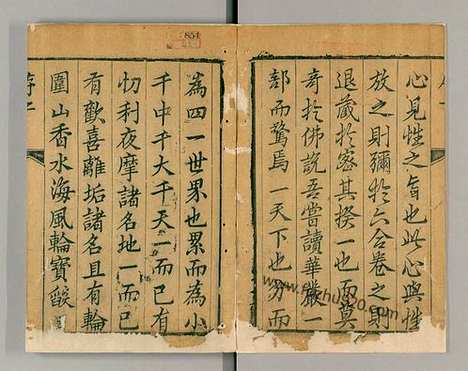 心見性之旨也此心與性
放之則彌於六合卷之則
退藏於密其揆一也而莫
奇於佛說吾嘗讀華嚴一
部而驚焉一天下也分而
為四一世界也累而為小
千中千大千天一而已有
忉利夜摩諸名地一而已
有歡喜離垢諸名且有輪
圍山香水海風輪寶燄
851